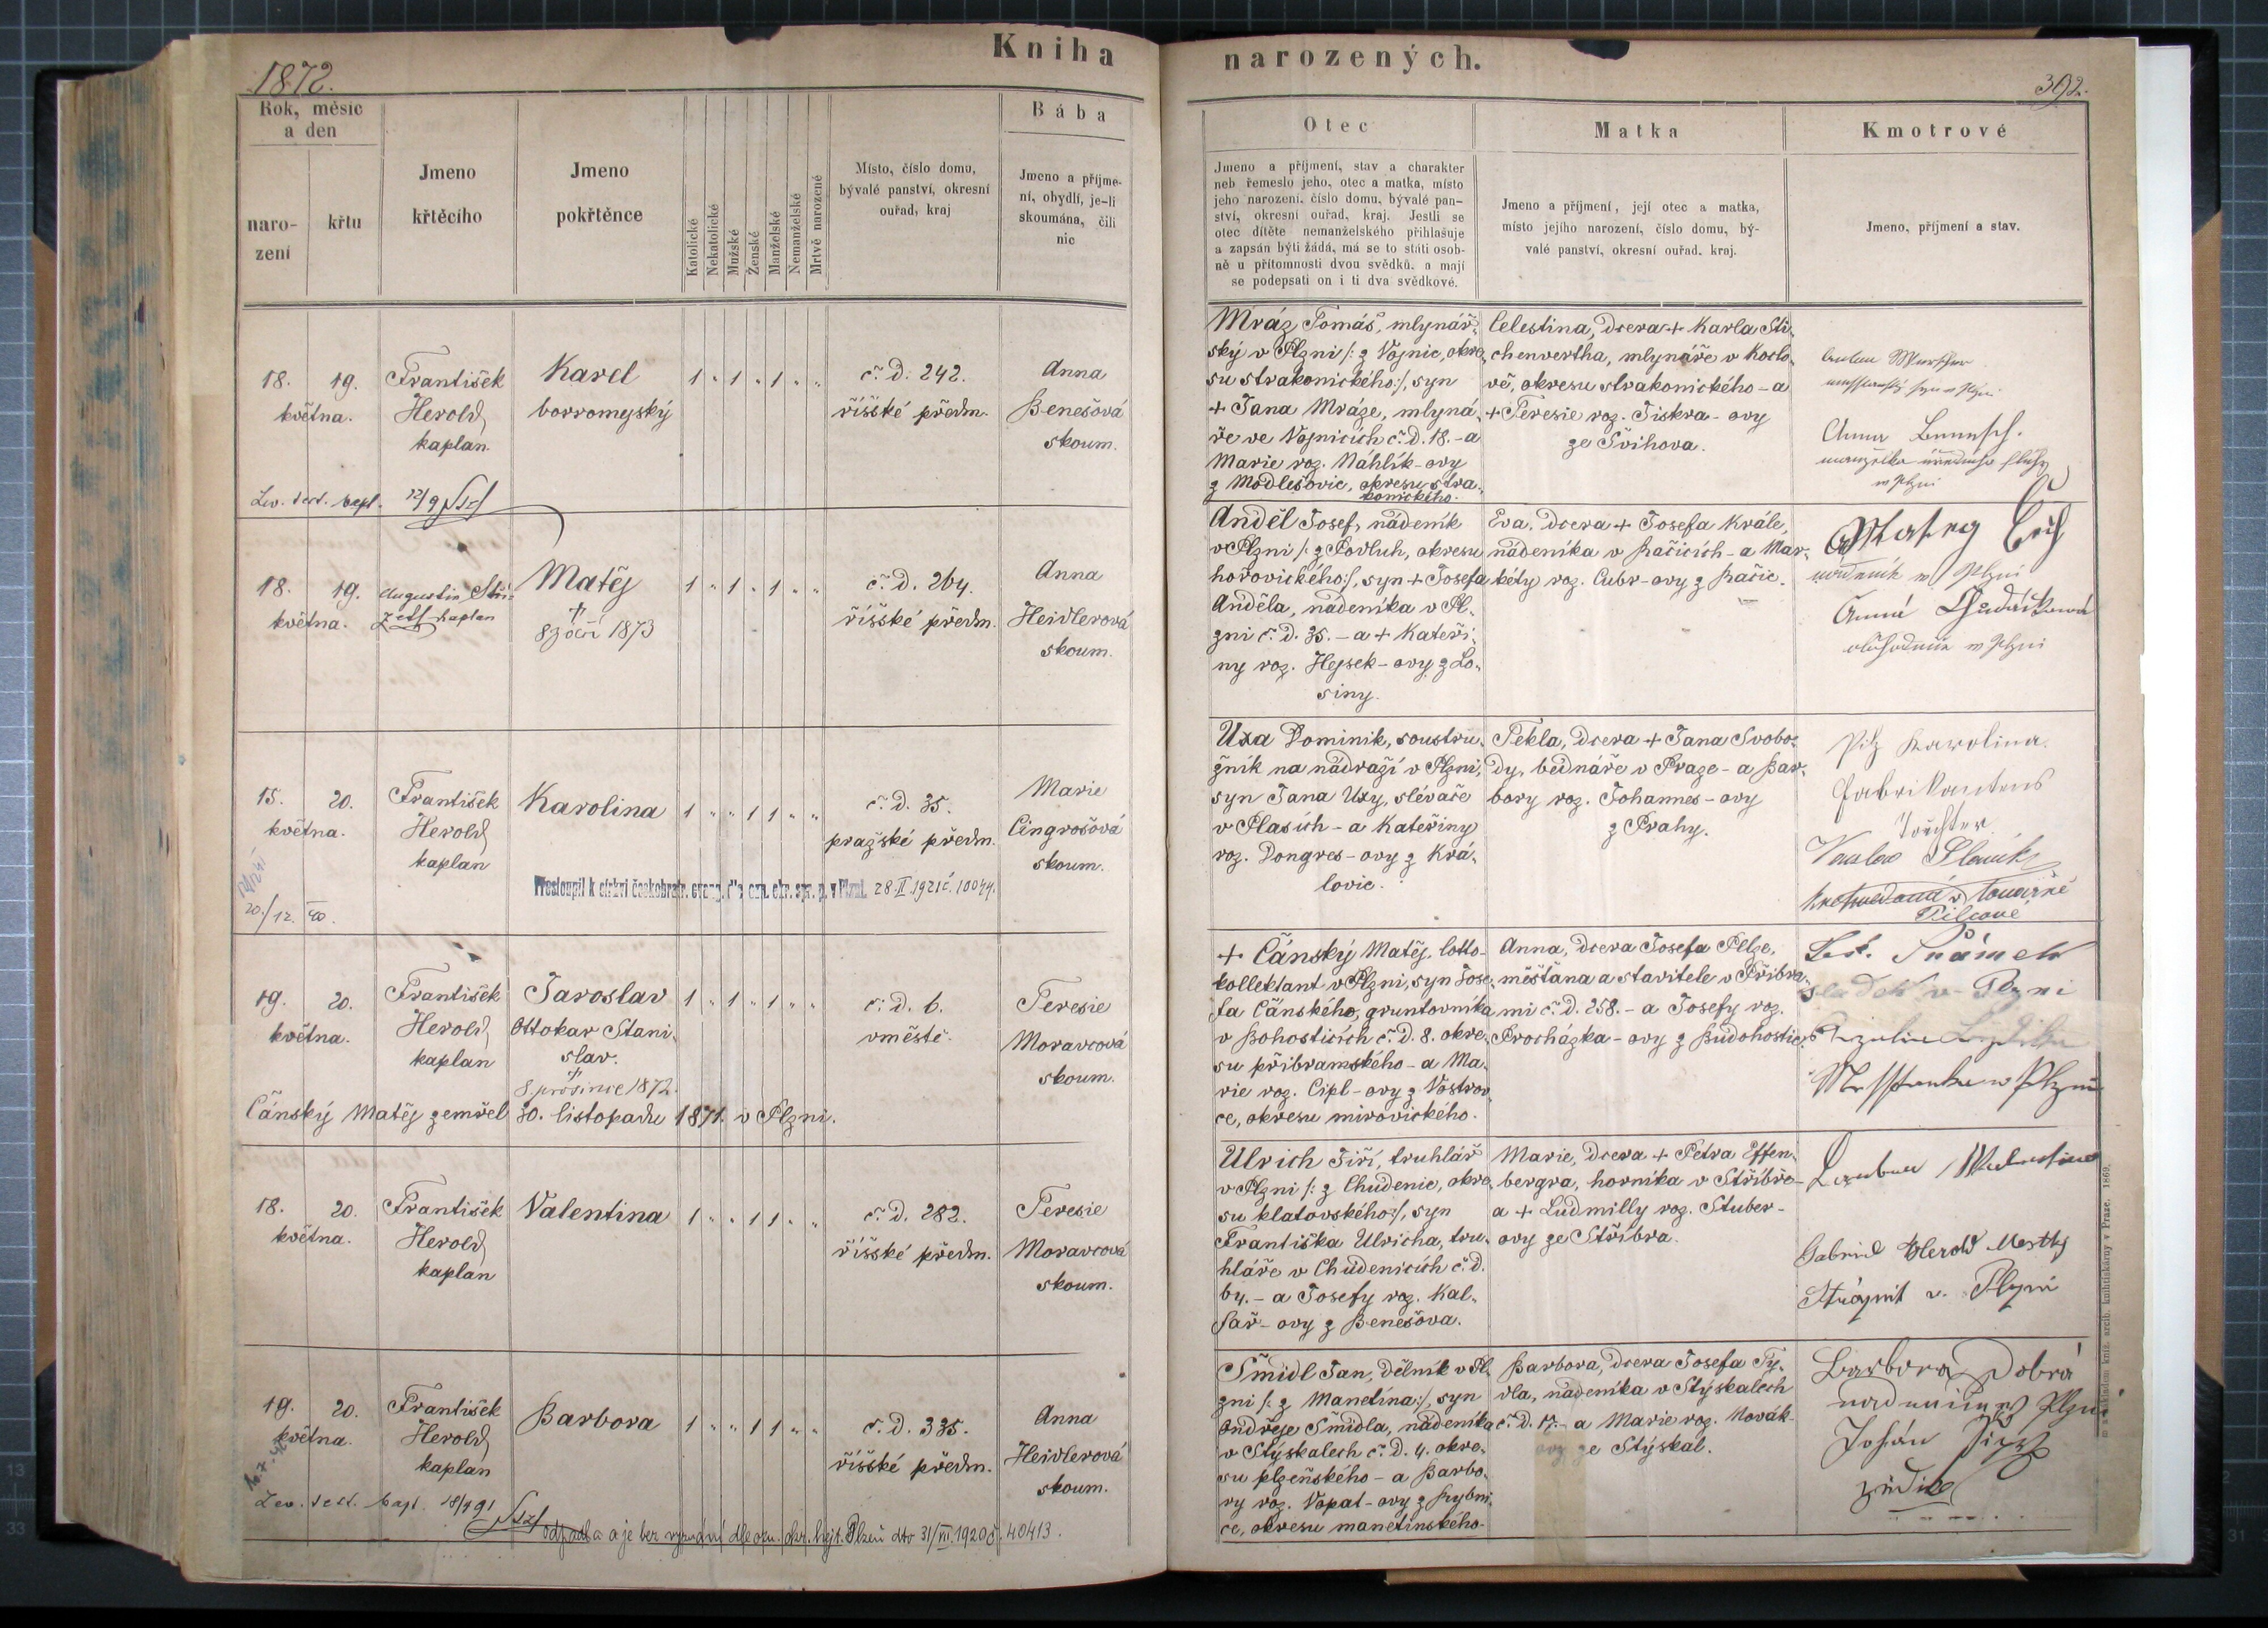 Kniha
narozených.
1872.
392.
Rok, měsíc
a den
naro-
zení
křtu
Jmeno
křtěcího
Jmeno
pokřtěnce
Katolické
Nekatolické
Mužské
Ženské
Manželské
Nemanželské
Mrtvě narozené
Místo, číslo domu,
bývalé panství, okresní
ouřad, kraj
Bába
Jmeno a příjme-
ní, obydlí, je-li
skoumána, čili
nic
Otec
Jmeno a příjmení, stav a charakter
neb řemeslo jeho, otec a matka, místo
jeho narození, číslo domu, bývalé pan-
ství, okresní ouřad, kraj. Jestli se
otec dítěte nemanželského přihlašuje
a zapsán býti žádá, má se to státi osob-
ně u přítomnosti dvou svědků, a mají
se podepsati on i ti dva svědkové.
Matka
Jmeno a příjmení, její otec a matka,
místo jejího narození, číslo domu, bý-
valé panství, okresní ouřad, kraj.
Kmotrové
Jmeno, příjmení a stav.
18. 19.
května.
František
Herold
kaplan.
Karel
borromejský
1 " 1 " 1 " "
č. d. 242.
říšské předm.
Anna
Benešová
skoum.
Mráz Tomáš, mlynář-
ský v Plzni /: z Vojnic, okre-
su strakonického :/, syn
+ Jana Mráze, mlyná-
ře ve Vojnicích č. d. 18. - a
Marie roz. Náhlík-ovy
z Modlešovic, okresu stra-
konického.
Celestina, dcera + Karla Sti-
chenwertha, mlynáře v Koclo-
vě, okresu strakonického - a
+ Teresie roz. Jiskra-ovy
ze Švihova.
Anna Benesch.
manželka
w Plzni
Lev. test. bapt. 12/9
18. 19.
května.
Augustin Stři-
kaplan
Matěj
†
8 září 1873
1 " 1 " 1 " "
č. d. 264.
říšské předm.
Anna
Heidlerová
skoum.
Anděl Josef, nádeník
v Plzni /: z Podluh, okresu
hořovického :/, syn + Josefa
Anděla, nádeníka v Pl-
zni č. d. 35. - a + Kateři-
ny roz. Hejsek-ovy z Lo-
siny.
Eva, dcera + Josefa Krále,
nádeníka v Račicích - a Mar-
kéty roz. Cubr-ovy z Račic.
Matey
nadenik w Plzni
Anna
w Plzni
15. 20.
května.
František
Herold
kaplan
Karolina
1 " " 1 1 " "
č. d. 35.
pražské předm.
Marie
Cingrošová
skoum.
20./12. 40.
Přestoupil k církvi českobratr. evang. v Plzni 28. II. 1921 č. 10044.
Uxa Dominik, soustru-
žník na nádraží v Plzni,
syn Jana Uxy, slévače
v Plasích - a Kateřiny
roz. Dongres-ovy z Krá-
lovic.
Tekla, dcera + Jana Svobo-
dy, bednáře v Praze - a Bar-
bory roz. Johannes-ovy
z Prahy.
Pilz Karolina.
Fabrikantens
Tochter
Vaclav
19. 20.
května.
František
Herold
kaplan
Jaroslav
Ottokar Stani-
slav.
†
8 prosince 1872.
1 " 1 " 1 " "
č. d. 6.
v městě.
Teresie
Moravcová
skoum.
Čánský Matěj zemřel 30. listopadu 1871. v Plzni.
+ Čánský Matěj, lotto-
kollektant v Plzni, syn Jose-
fa Čánského, gruntovníka
v Bohosticích č. d. 8. okre-
su příbramského - a Ma-
rie roz. Cipl-ovy z Vostrov-
ce, okresu mirovického.
Anna, dcera Josefa Pelze,
měšťana a stavitele v Příbra-
mi č. d. 258. - a Josefy roz.
Procházka-ovy z Budohostic
sladek v Plzni
w Plzni
18. 20.
května.
František
Herold
kaplan
Valentina
1 " " 1 1 " "
č. d. 282.
říšské předm.
Teresie
Moravcová
skoum.
Ulrich Jiří, truhlář
v Plzni /: z Chudenic, okre-
su klatovského :/, syn
Františka Ulricha, tru-
hláře v Chudenicích č. d.
64. - a Josefy roz. Kal-
šař-ovy z Benešova.
Marie, dcera + Petra Effen-
bergra, horníka v Stříbře -
a + Ludmilly roz. Stuber-
ovy ze Stříbra.
Gabriel Herold Mestky
Strážnik v. Plzni
19. 20.
května.
František
Herold
kaplan
Barbora
1 " " 1 1 " "
č. d. 335.
říšské předm.
Anna
Heidlerová
skoum.
Lev. test. bapt. 18/9 91
odpadla a je bez vyznání dle ozn. okr. hejt. Plzeň dto 31/III. 1920 č. 40413.
Šmidl Jan, dělník v Pl-
zni /: z Manetína :/, syn
Ondřeje Šmidla, nádeníka
v Stýskalech č. d. 4. okre-
su plzeňského - a Barbo-
ry roz. Vopat-ovy z Rybni-
ce, okresu manetínského.
Barbora, dcera Josefa Ty-
dla, nádeníka v Stýskalech
č. d. 17. - a Marie roz. Novák-
ovy ze Stýskal.
Barbora Dobrá
Johán